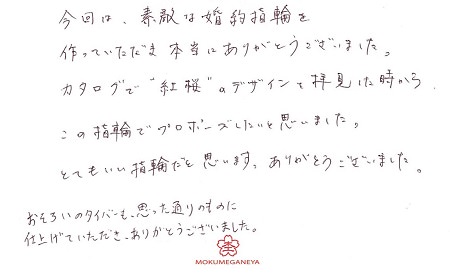 今回は、素敵な婚約指輪を
作っていただき本当にありがとうございました。
カタログで“紅桜”のデザインを拝見した時から
この指輪でプロポーズしたいと思いました。
とてもいい指輪だと思います。ありがとうございました。
おそろいのタイバーも、思った通りのものに
仕上げていただき、ありがとうございました。
MOKUMEGANEYA